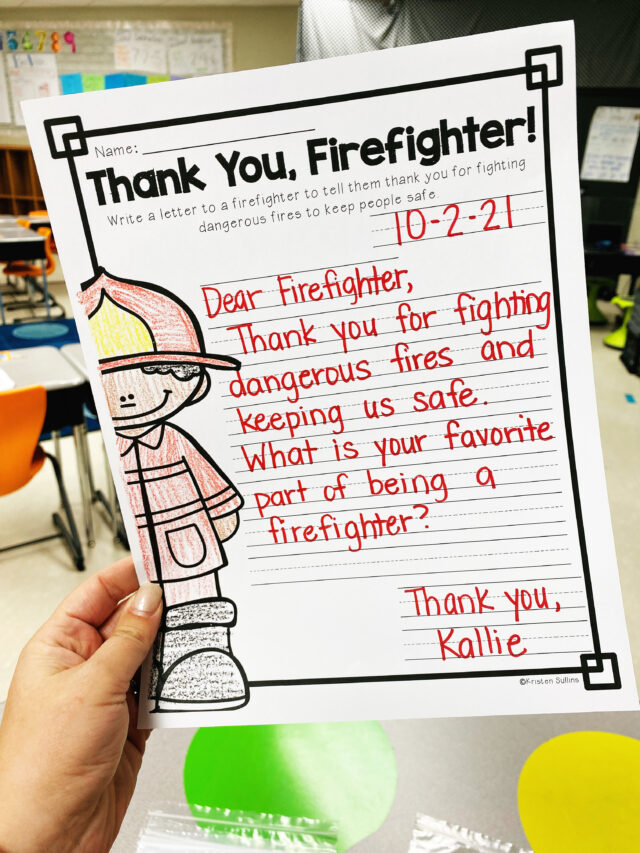 Name:
Thank You, Firefighter!
Write a letter to a firefighter to tell them thank you for fighting
dangerous fires to keep people safe.
10-2-21
Dear Firefighter,
Thank you for fighting
dangerous fires and
keeping us safe.
What is your favorite
part of being a
firefighter?
Thank you,
Kallie
©Kristen Sullins